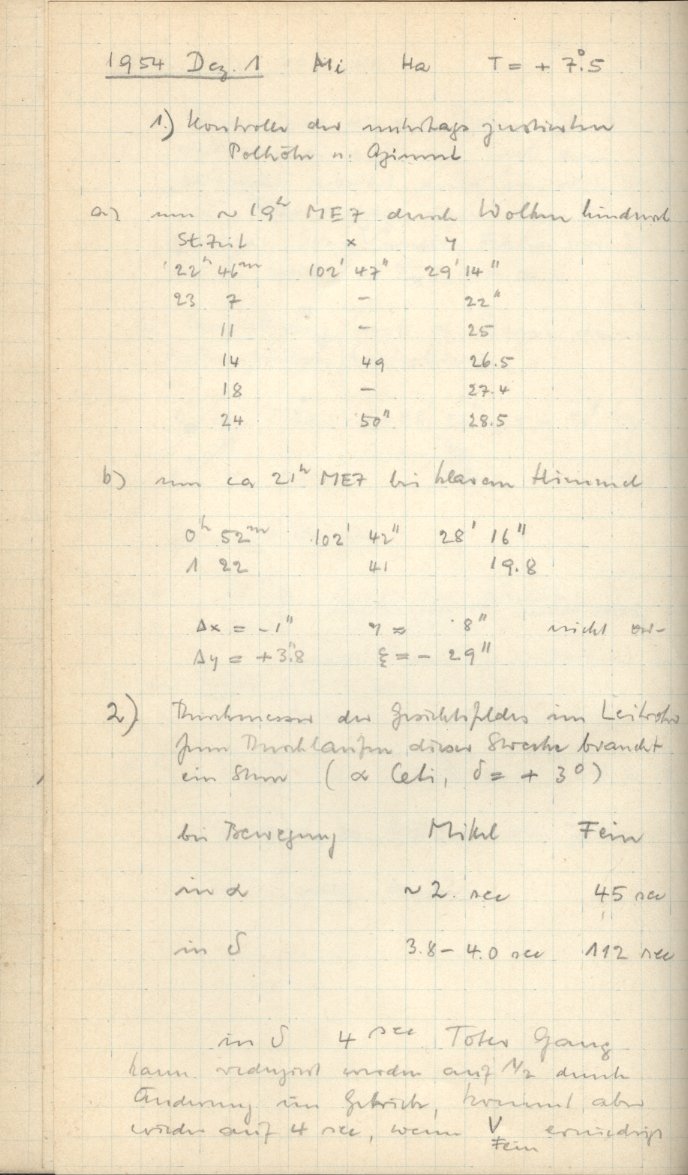 1954 Dez. 1 Mi Ha T = + 7°.5
1.) Kontrolle der untertags justierten
Polhöhe u. Azimut
a) um ~ 19h MEZ durch Wolken hindurch
St.Zeit x y
22h 46m 102' 47" 29' 14"
23 7 - 22"
11 - 25
14 49 26.5
18 - 27.4
24 50" 28.5
b) um ca 21h MEZ bei klarem Himmel
0h 52m 102' 42" 28' 16"
1 22 41 19.8
Δx = -1" η ≈ 8" nicht
Δy = +3".8 ξ = - 29"
2) Durchmesser des Gesichtsfeldes im Leitrohr
Zum Durchlaufen dieser Strecke braucht
ein Stern (α Ceti, δ = + 3°)
bei Bewegung Mittel Fein
in α ~ 2. sec 45 sec
in δ 3.8 - 4.0 sec 112 sec
in δ 4 sec Toter Gang
kann reduziert werden auf 1/2 durch
Änderung im Getriebe, kommt aber
wieder auf 4 sec, wenn V Fein erniedrigt